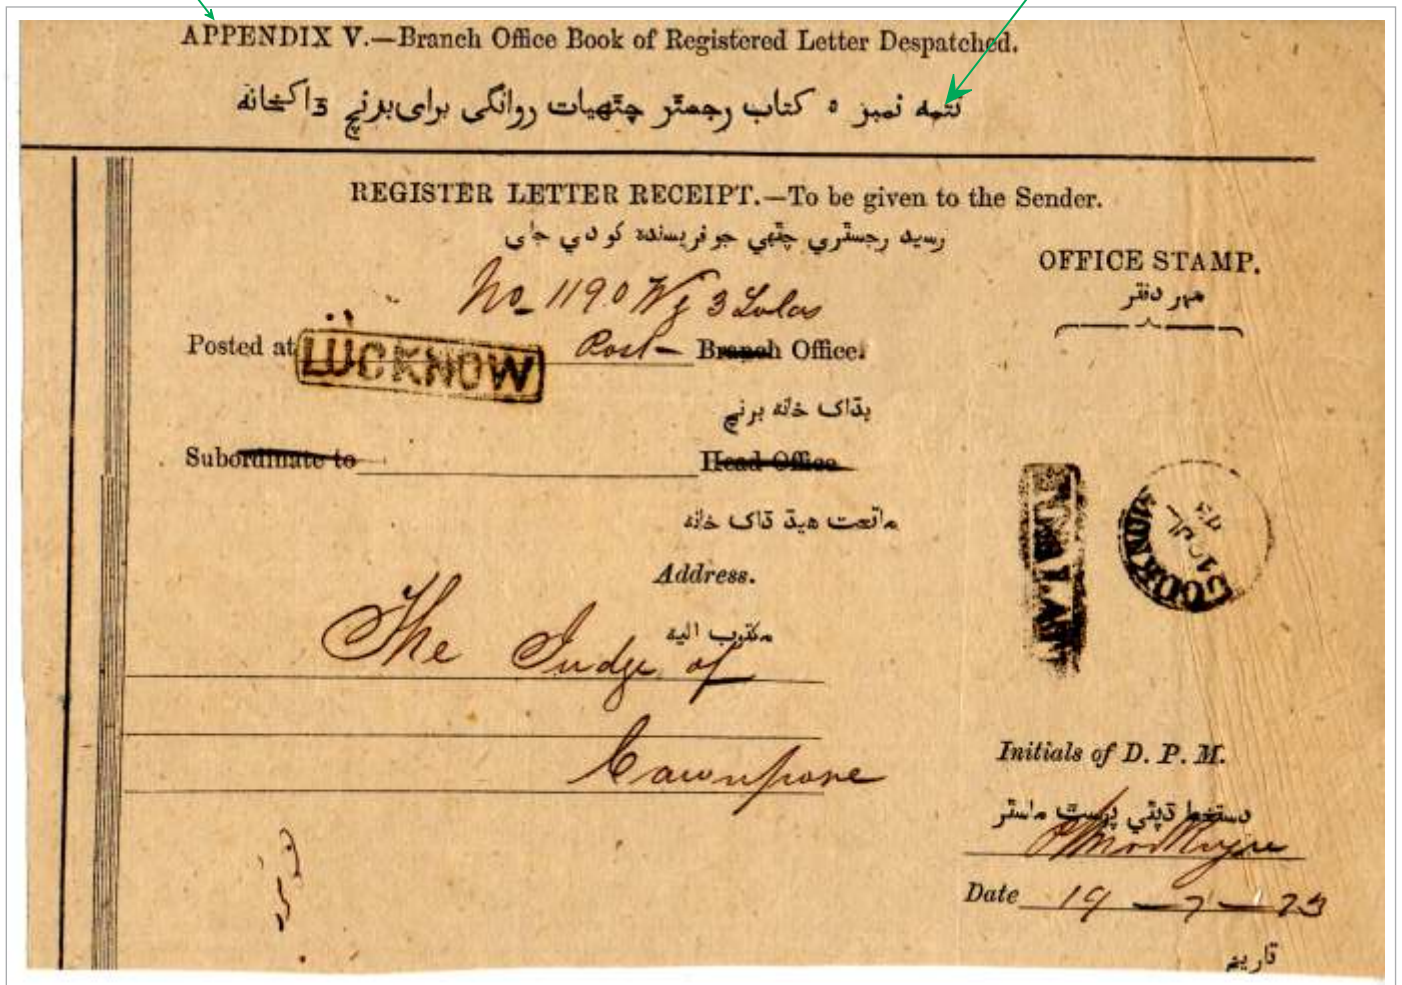 APPENDIX V.—Branch Office Book of Registered Letter Despatched.
تتمه نمبر ٥ کتاب رجسٹر چٹھیات روانگی برای برنچ ڈاکخانه
REGISTER LETTER RECEIPT.—To be given to the Sender.
رسید رجسٹري چٹھي جو فریسنده کو دي جاى
OFFICE STAMP.
مهر دفتر
No 1190 Wg 3 Tolas
Posted at LUCKNOW Post Branch Office.
بڈاک خانه برنچ
Subordinate to Head Office
ماتحت هیڈ ڈاک خانه
LUCKNOW
JUL
Address.
مکتوب الیه
The Judge of
Cawnpore
Initials of D. P. M.
دستخط ڈپٹي پوسٹ ماسٹر
Date 19-7-73
تاریخ